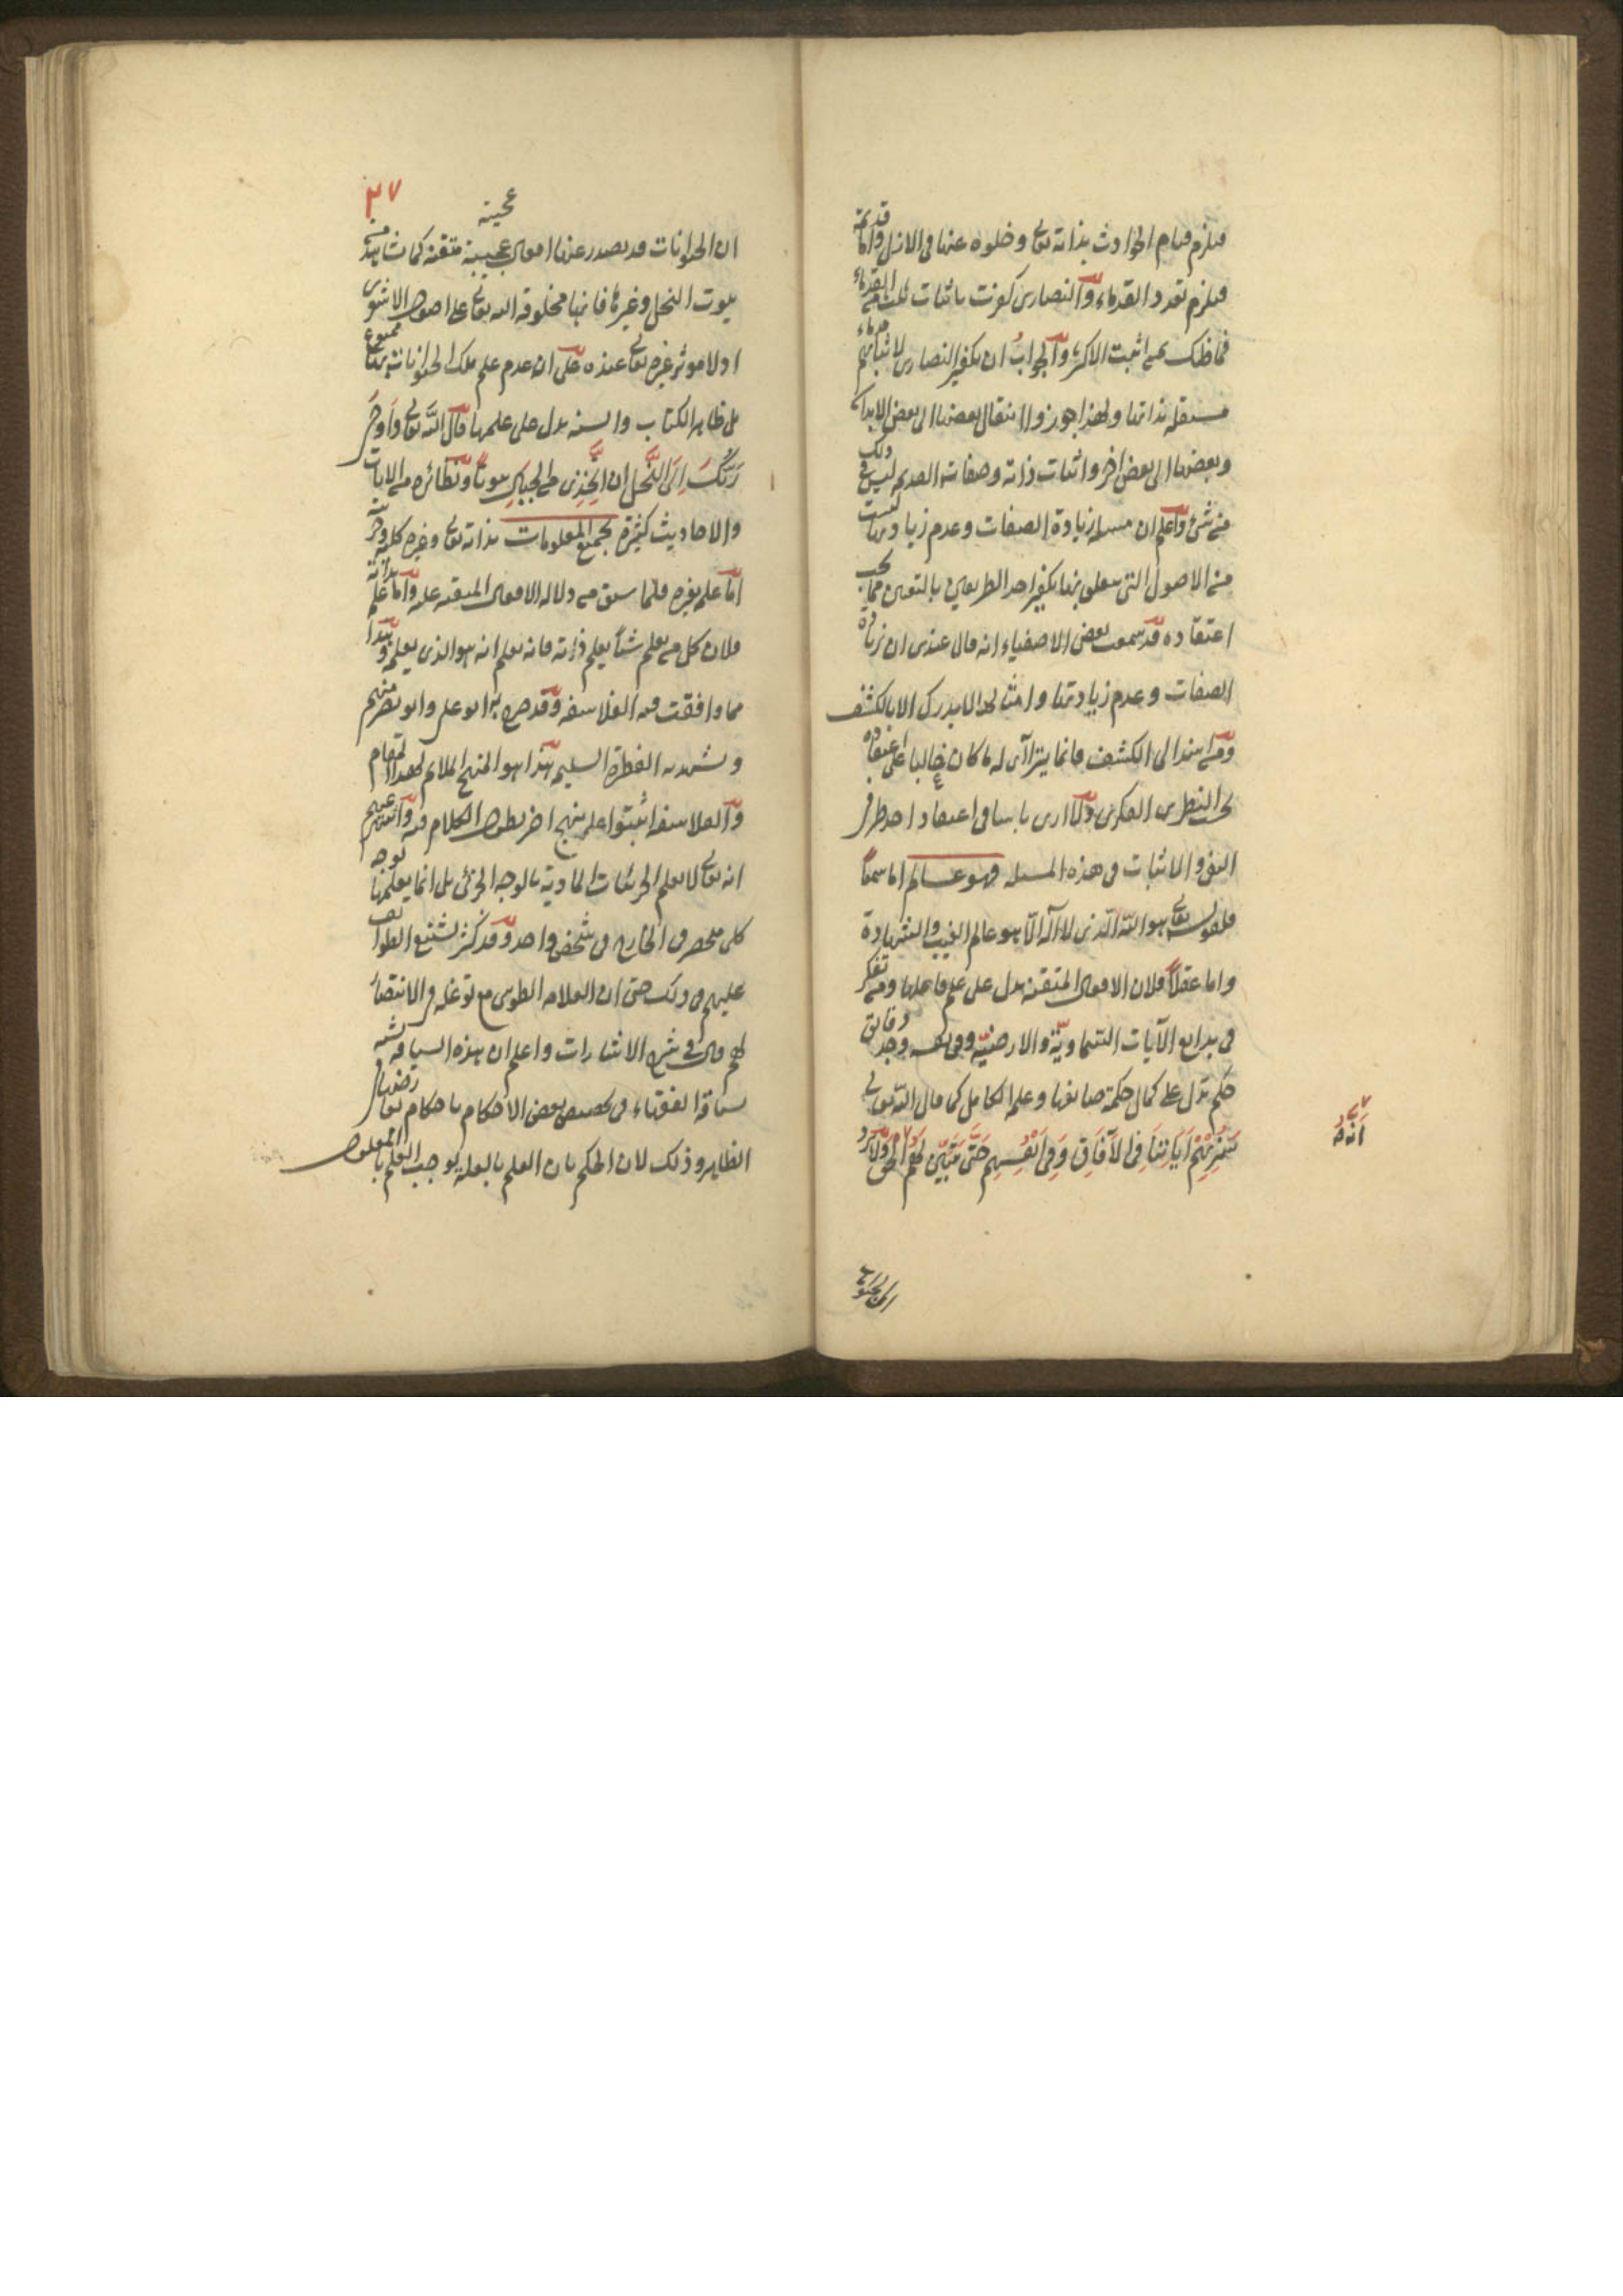 فيلزم قيام الحوادث بذاته تعالى وخلوه عنها فى الازل واما قديمة
فيلزم تعدد القدماء والنصارى كفرت باثبات ثلثة من القدماء
فما ظنك بمن اثبت الاكثر والجواب ان تكفير النصارى لاثباتهم قدماء
مستقلة بذاتها ولهذا جوزوا انتقال بعضها الى بعض الابدان
وبعضها الى بعض اخر واثبات ذاته وصفاته القديمة ليس ذلك فى
من شئ واعلم ان مسئلة زيادة الصفات وعدم زيادتها ليست
من الاصول التى يتعلق بها تكفير احد الطرفين بالتعيين مما يجب
اعتقاده قد سمعت بعض الاصفياء انه قال عندى ان زيادة
الصفات وعدم زيادتها وامثالها لا يدرك الا بالكشف
ومن اسند الى الكشف فانما يترا آى له ما كان غالبا على اعتقاده
بحسب النظر الفكرى ولا ارى باسا فى اعتقاد احد طرفى
النفى والاثبات فى هذه المسئلة فهو عالم اما سمعاً
فلقوله تعالى هو الله الذى لا اله الا هو عالم الغيب والشهادة
واما عقلاً فلان الافعال المتقنة يدل على علم فاعلها ومن تفكر
فى بدايع الآيات السماوية والارضية وفى نفسه وجد دقايق
حكم تدل على كمال حكمة صانعها وعلمه الكامل كما قال الله تعالى
سَنُرِيهِمْ اَيَاتِنَا فِى الآفَاقِ وَفِى اَنْفُسِهِمْ حَتَّى يَتَبَيَّنَ لَهُمْ الحق ولا يرد
اَنَّهُ
ان الحيوا
٣٧
عجيبة
ان الحيوانات قد يصدر عنها افعال عجيبة متقنة كما نشاهد من
بيوت النحل وغيرها فانها مخلوقة الله تعالى على اصول الاشعرى
اذ لا موثر غيره تعالى عنده على ان عدم علم تلك الحيوانات بها ممنوع
بل ظاهر الكتاب والسنة يدل على علمها قال الله تعالى وَاَوْحَى
رَبُّكَ اِلَى النَّحْلِ ان اتَّخِذِى من الجبال بيوتاً ونظائره من الآيات
والاحاديث كثيرة بجميع المعلومات بذاته تعالى وغيره كلية وجزئية
اما علمه بغيره فلما سبق من دلالة الافعال المتقنة عليه واما علمه بذاته
فلان كل من يعلم شئاً يعلم ذاته فانه يعلم انه هو الذى يعلمه وهذا
مما وافقت فيه الفلاسفة وقد صرح به ابو على وابو نصر منهم
ويشهد به الفطرة السليمة هذا هو المنهج الملائم لهذا المقام
والفلاسفة اثبتوا على منهج اخر يطول الكلام فيه واشتهر عنهم
انه تعالى لا يعلم الجزئيات المادية بالوجه الجزئى بل انما يعلمها بوجه
كلى منحصر فى الخارج فى شخص واحد وقد كثر تشنيع الطوائف
عليهم فى ذلك حتى ان العلامة الطوسى مع توغله فى الانتصار
لهم قال فى شرح الاشارات واعلم ان هذه السياقة تشبه
سياقة الفقهاء فى تخصيص بعض الاحكام باحكام تعارضها فى
الظاهر وذلك لان الحكم بان العلم بالعلة يوجب العلم بالمعلول